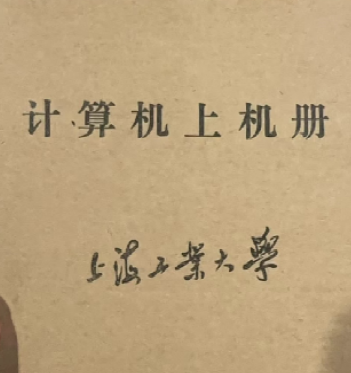 计算机上机册
上海工業大學